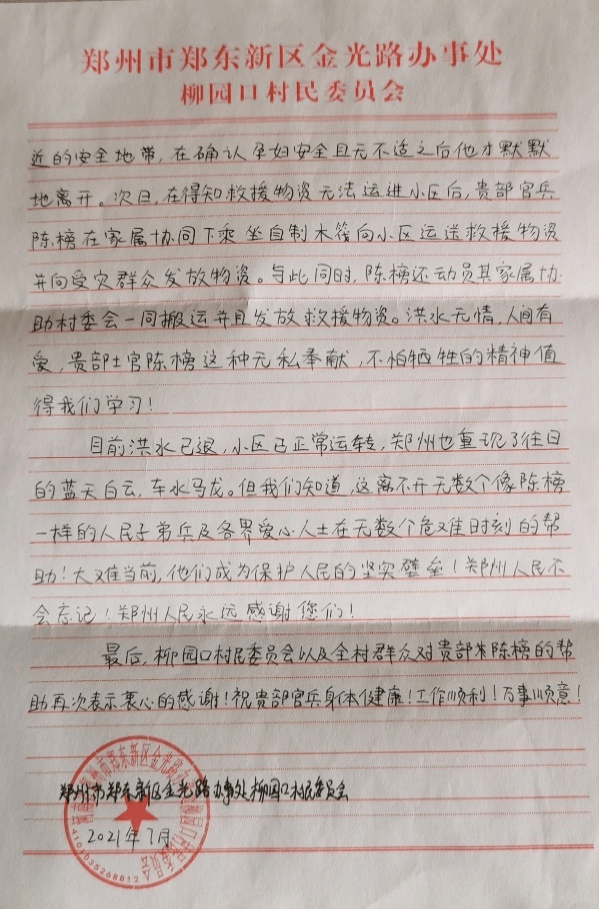 郑州市郑东新区金光路办事处
柳园口村民委员会
近的安全地带,在确认孕妇安全且无不适之后他才默默
地离开。次日,在得知救援物资无法运进小区后,贵部官兵
陈榜在家属协同下乘坐自制木筏向小区运送救援物资
并向受灾群众发放物资。与此同时,陈榜还动员其家属协
助村委会一同搬运并且发放救援物资。洪水无情,人间有
爱,贵部士官陈榜这种无私奉献,不怕牺牲的精神值
得我们学习!
目前洪水已退,小区已正常运转,郑州也重现了往日
的蓝天白云,车水马龙。但我们知道,这离不开无数个像陈榜
一样的人民子弟兵及各界爱心人士在无数个危难时刻的帮
助!大难当前,他们成为保护人民的坚实壁垒!郑州人民不
会忘记!郑州人民永远感谢您们!
最后,柳园口村民委员会以及全村群众对贵部陈榜的帮
助再次表示衷心的感谢!祝贵部官兵身体健康!工作顺利!万事顺意!
郑州市郑东新区金光路办事处柳园口村民委员会
2021年7月
4101035268812